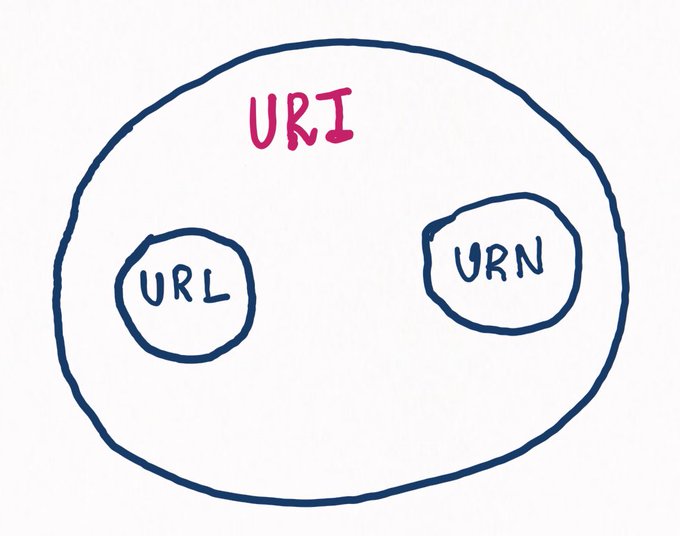 URI
URL
URN